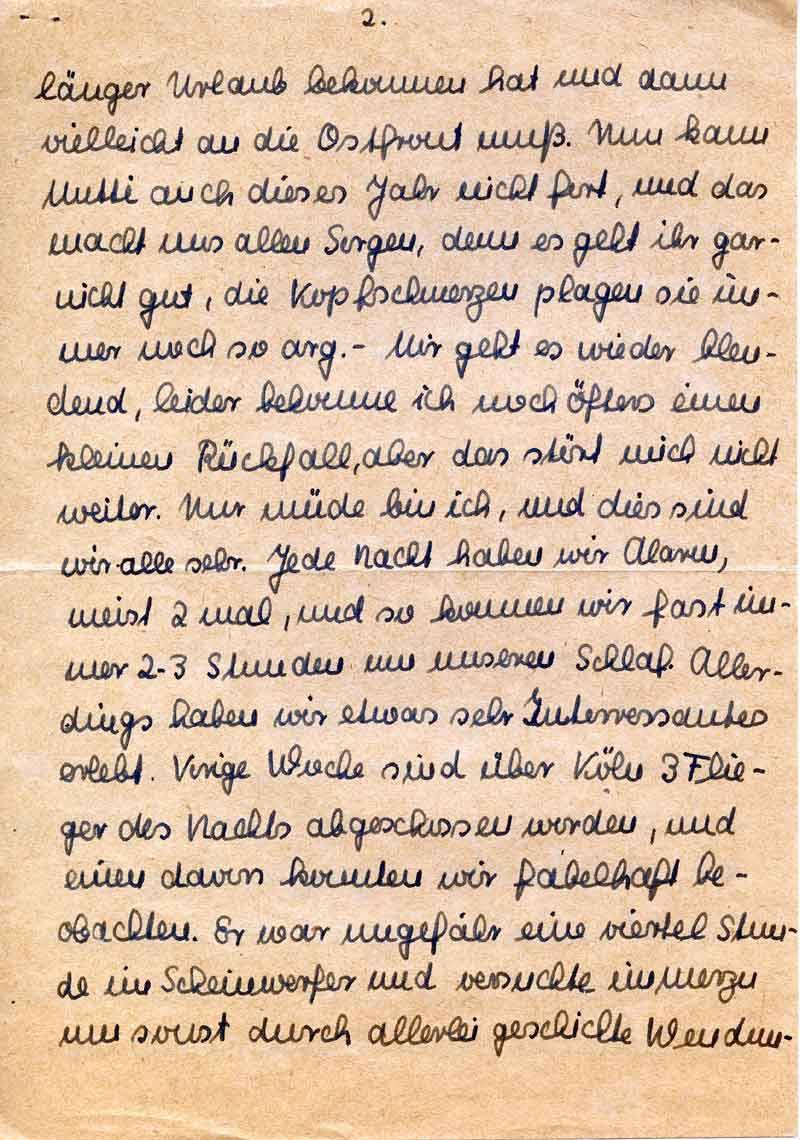 2.
länger Urlaub bekommen hat und dann
vielleicht an die Ostfront muß. Nun kann
Mutti auch dieses Jahr nicht fort, und das
macht uns allen Sorgen, denn es geht ihr gar-
nicht gut, die Kopfschmerzen plagen sie im-
mer noch so arg. - Mir geht es wieder blen-
dend, leider bekomme ich noch öfters einen
kleinen Rückfall, aber das stört mich nicht
weiter. Nur müde bin ich, und dies sind
wir alle sehr. Jede Nacht haben wir Alarm,
meist 2 mal, und so kommen wir fast im-
mer 2-3 Stunden um unseren Schlaf. Aller-
dings haben wir etwas sehr Interressantes
erlebt. Vorige Woche sind über Köln 3 Flie-
ger des Nachts abgeschossen worden, und
einen davon konnten wir fabelhaft be-
obachten. Er war ungefähr eine viertel Stun-
de im Scheinwerfer und versuchte immerzu
umsonst durch allerlei geschickte Wendun-